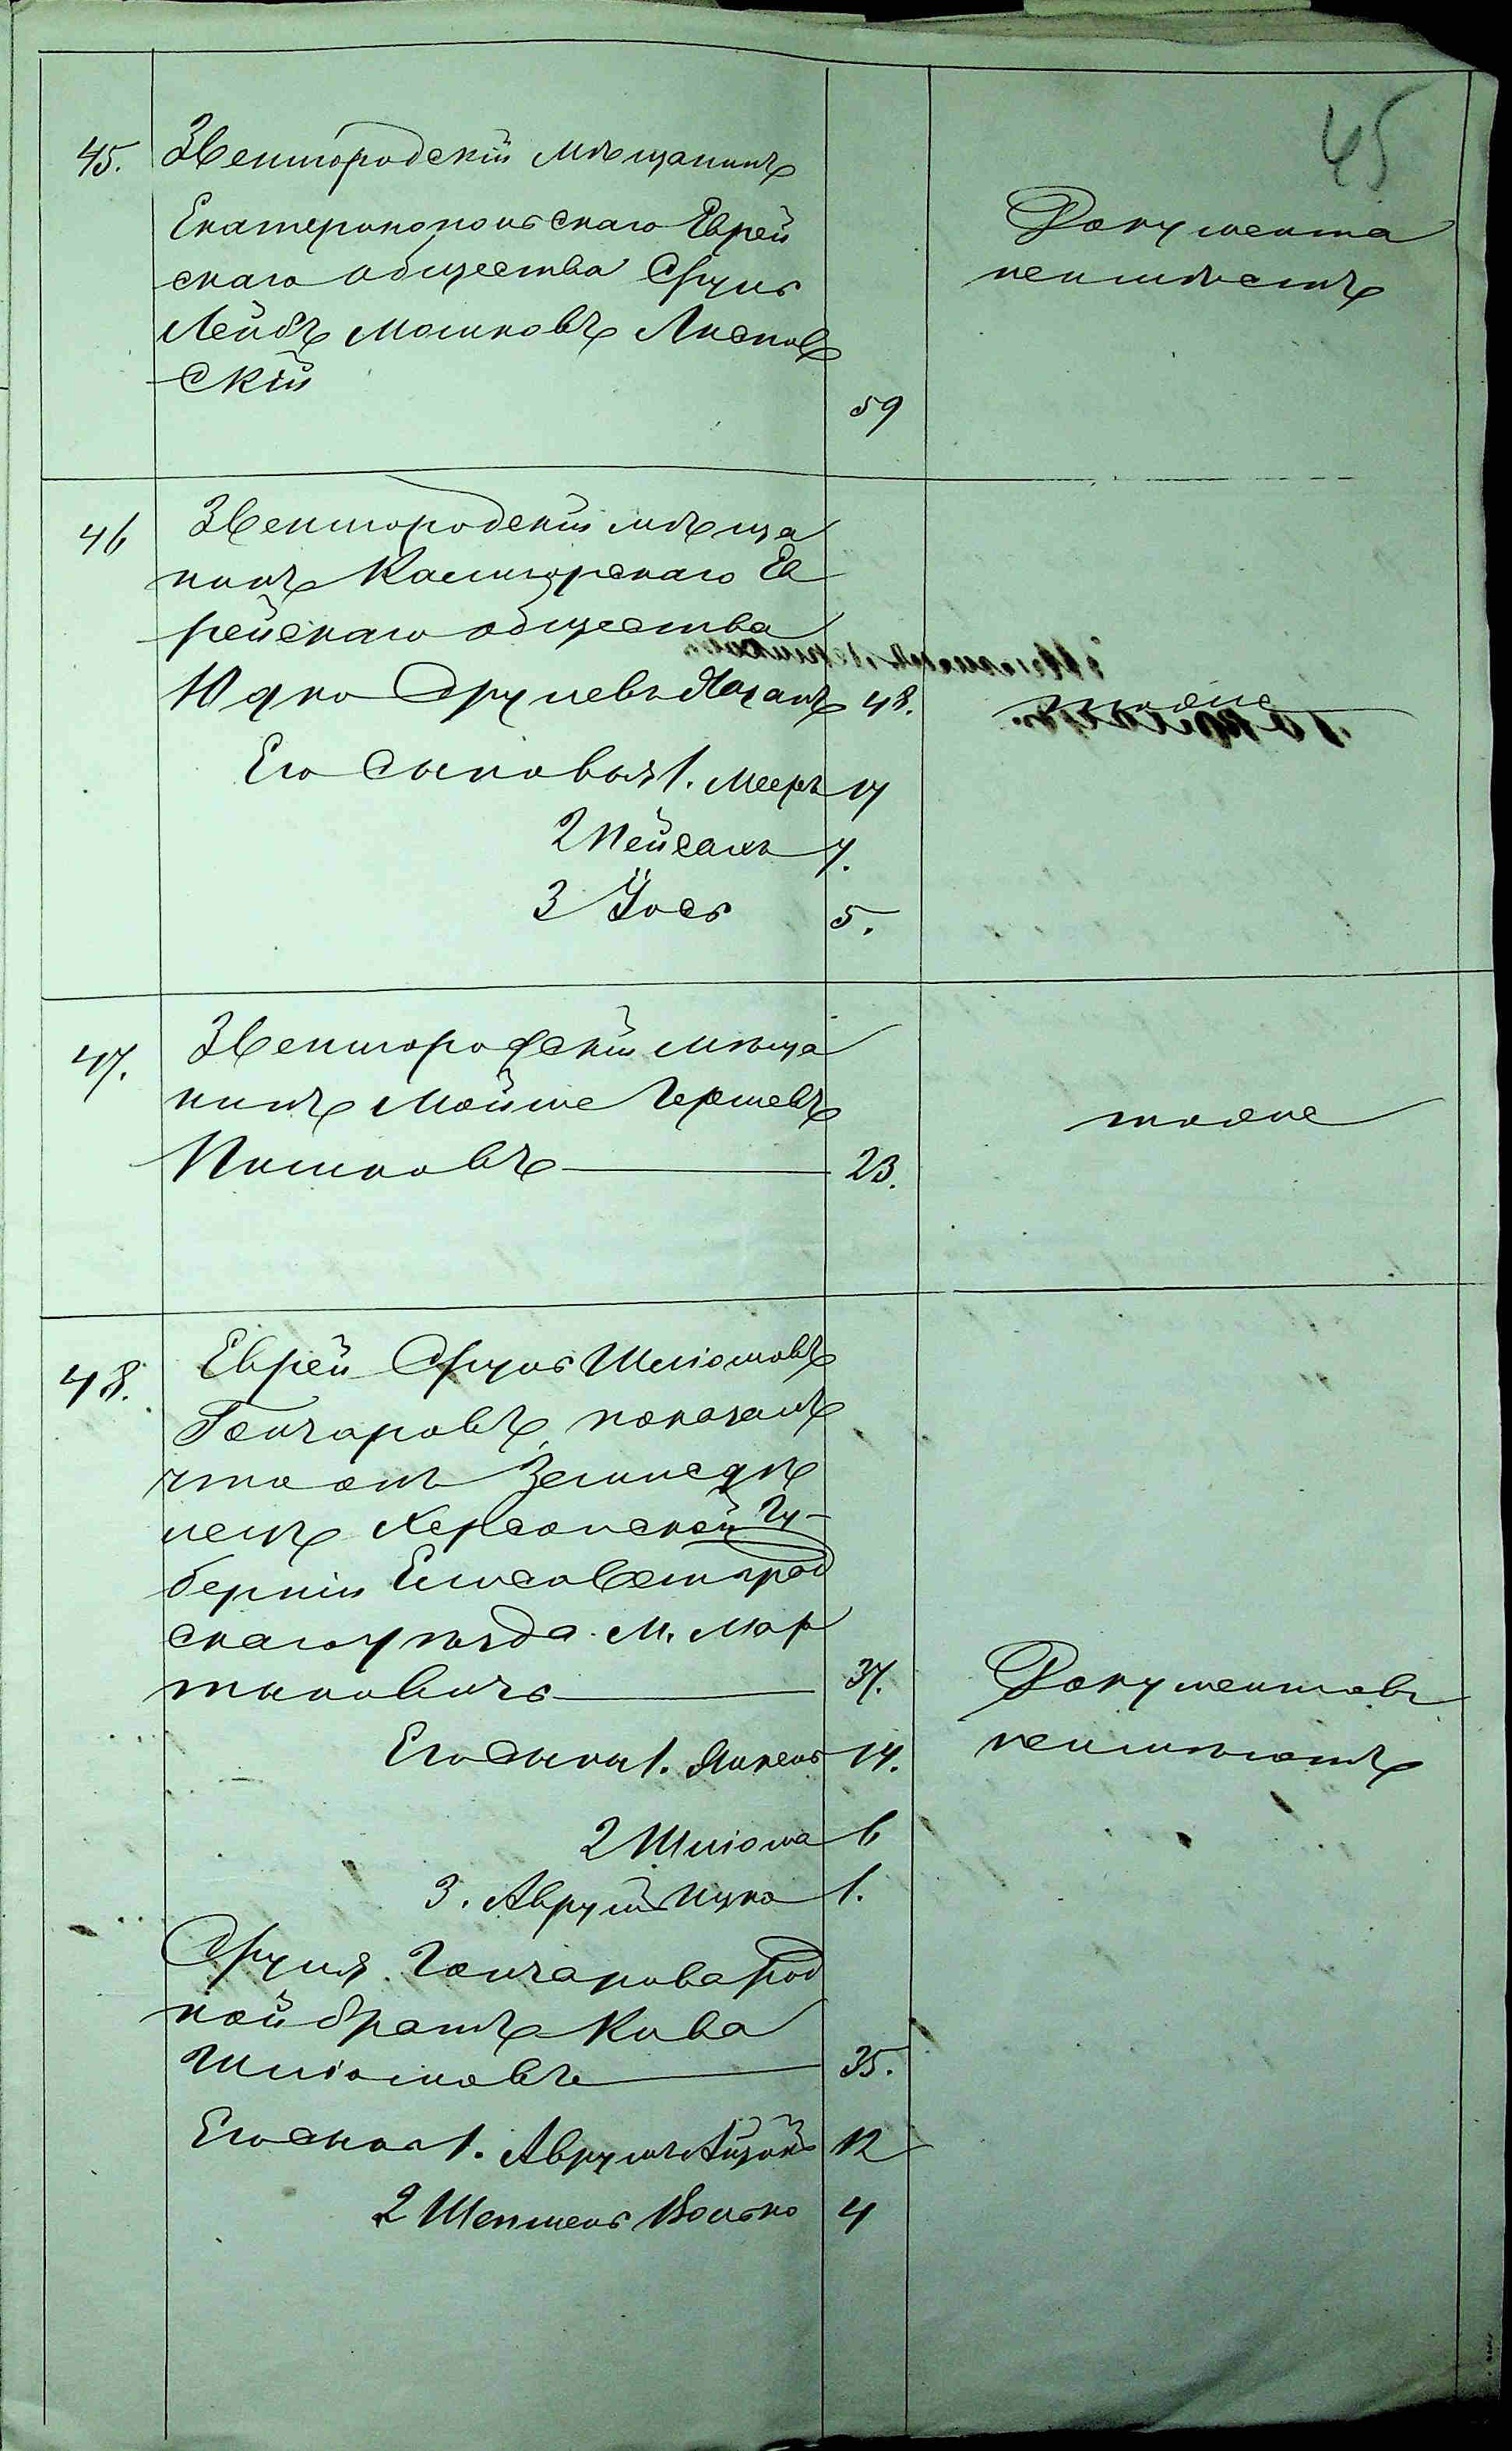 45
45. Звенигородскій мѣщанинъ
Екатеринопольскаго Еврей
скаго общества Сруль
Лейбъ Мошковъ Липов
скій 59
Документа
неимѣетъ
46 Звенигородскій мѣща
нинъ Ев
рейскаго общества
Юдко Срулевъ Хазанъ 48.
тоже
Его сыновья 1. Мееръ 17
2 Пейсахъ 7.
3 Йось 5.
47. Звенигородскій мѣща
нинъ Мойше Гершевъ
23.
тоже
48. Еврей Сруль Шліомовъ
Гончаровъ, показалъ
что онъ Земледѣ
лецъ Херсонской Гу-
берніи Елисаветград
скаго уѣзда м. Мар
тыновичь 37.
Документовъ
неимѣютъ
Его сыны 1. Янкель 14.
2 Шліома 6
3. Аврумъ Ицко 1.
Сруля Гончарова род
ной братъ Кива
Шліомовъ 35.
Его сыны 1. Аврумъ Айзикъ 12
2 Шепшель Волько 4